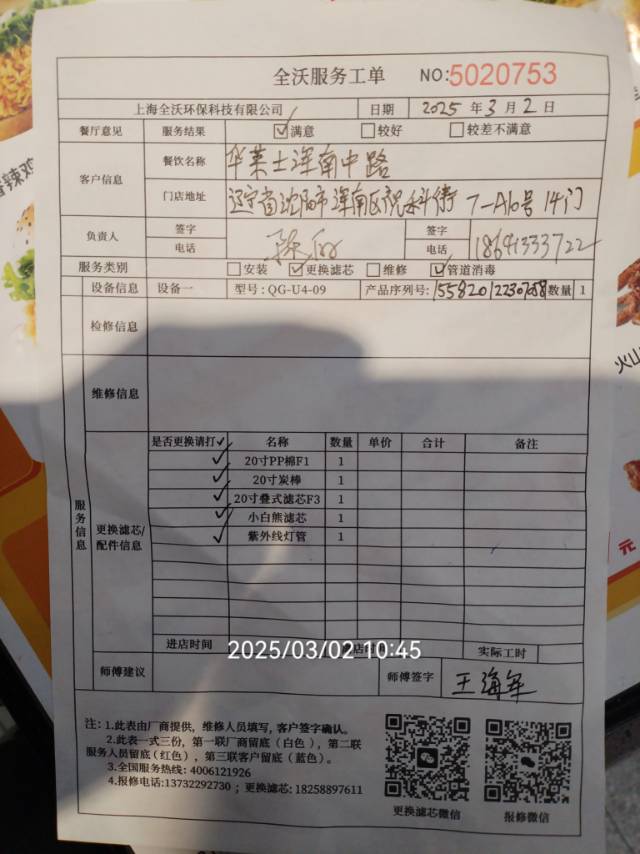 全沃服务工单 NO:5020753
上海全沃环保科技有限公司 日期 2025 年 3 月 2 日
餐厅意见 服务结果 ☑满意 □较好 □较差不满意
客户信息 餐饮名称 华莱士浑南中路
门店地址 辽宁省沈阳市浑南区祝科街 7-A10号 14门
负责人 签字 签字
电话 电话 18641333722
服务类别 □安装 ☑更换滤芯 □维修 ☑管道消毒
设备信息 设备一 型号:QG-U4-09 产品序列号: 数量 1
检修信息
维修信息
服务信息
更换滤芯/配件信息
是否更换请打✓ 名称 数量 单价 合计 备注
✓ 20寸PP棉F1 1
✓ 20寸炭棒 1
✓ 20寸叠式滤芯F3 1
✓ 小白熊滤芯 1
✓ 紫外线灯管 1
进店时间 2025/03/02 10:45 实际工时
师傅建议 师傅签字 王海军
注: 1.此表由厂商提供, 维修人员填写, 客户签字确认。
2.此表一式三份, 第一联厂商留底 (白色), 第二联
服务人员留底 (红色), 第三联客户留底 (蓝色)。
3.全国服务热线: 4006121926
4.报修电话:13732292730 ; 更换滤芯: 18258897611
更换滤芯微信 报修微信
元